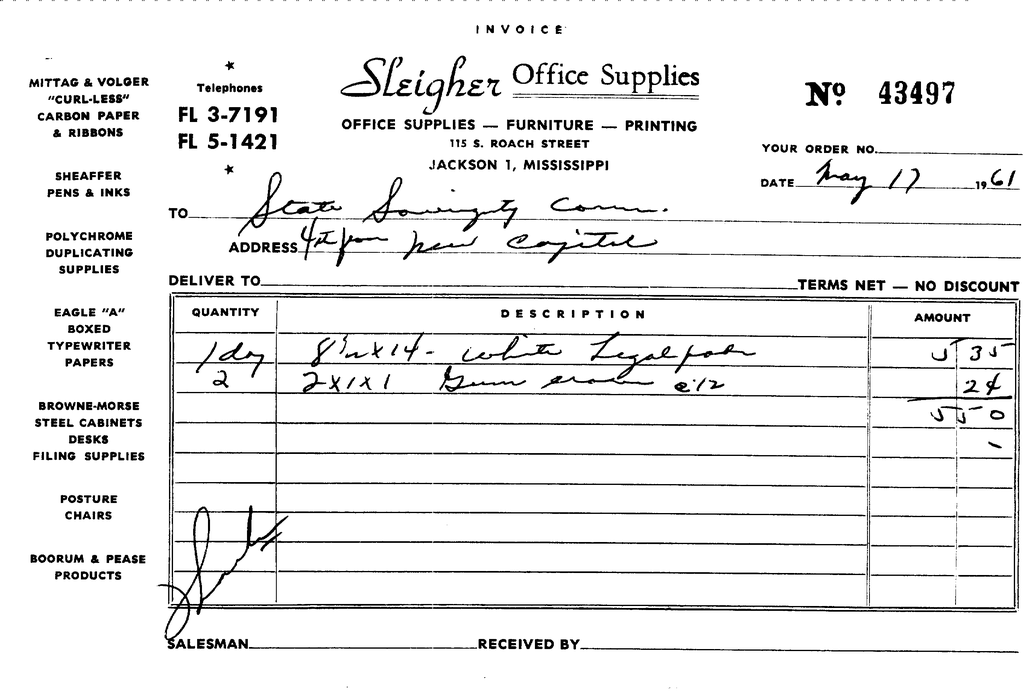 INVOICE
MITTAG & VOLGER
"CURL-LESS"
CARBON PAPER
& RIBBONS
SHEAFFER
PENS & INKS
POLYCHROME
DUPLICATING
SUPPLIES
EAGLE "A"
BOXED
TYPEWRITER
PAPERS
BROWNE-MORSE
STEEL CABINETS
DESKS
FILING SUPPLIES
POSTURE
CHAIRS
BOORUM & PEASE
PRODUCTS
Telephones
FL 3-7191
FL 5-1421
Sleigher Office Supplies
OFFICE SUPPLIES — FURNITURE — PRINTING
115 S. ROACH STREET
JACKSON 1, MISSISSIPPI
Nº 43497
YOUR ORDER NO.
DATE May 17 1961
TO State Sovereignty Comm.
ADDRESS New Capitol
DELIVER TO TERMS NET — NO DISCOUNT
QUANTITY DESCRIPTION AMOUNT
1 dz 8½ x 14 - White Legal pads 5 35
2 2x1x1 Gum eraser @ 12 24
5 50
SALESMAN RECEIVED BY